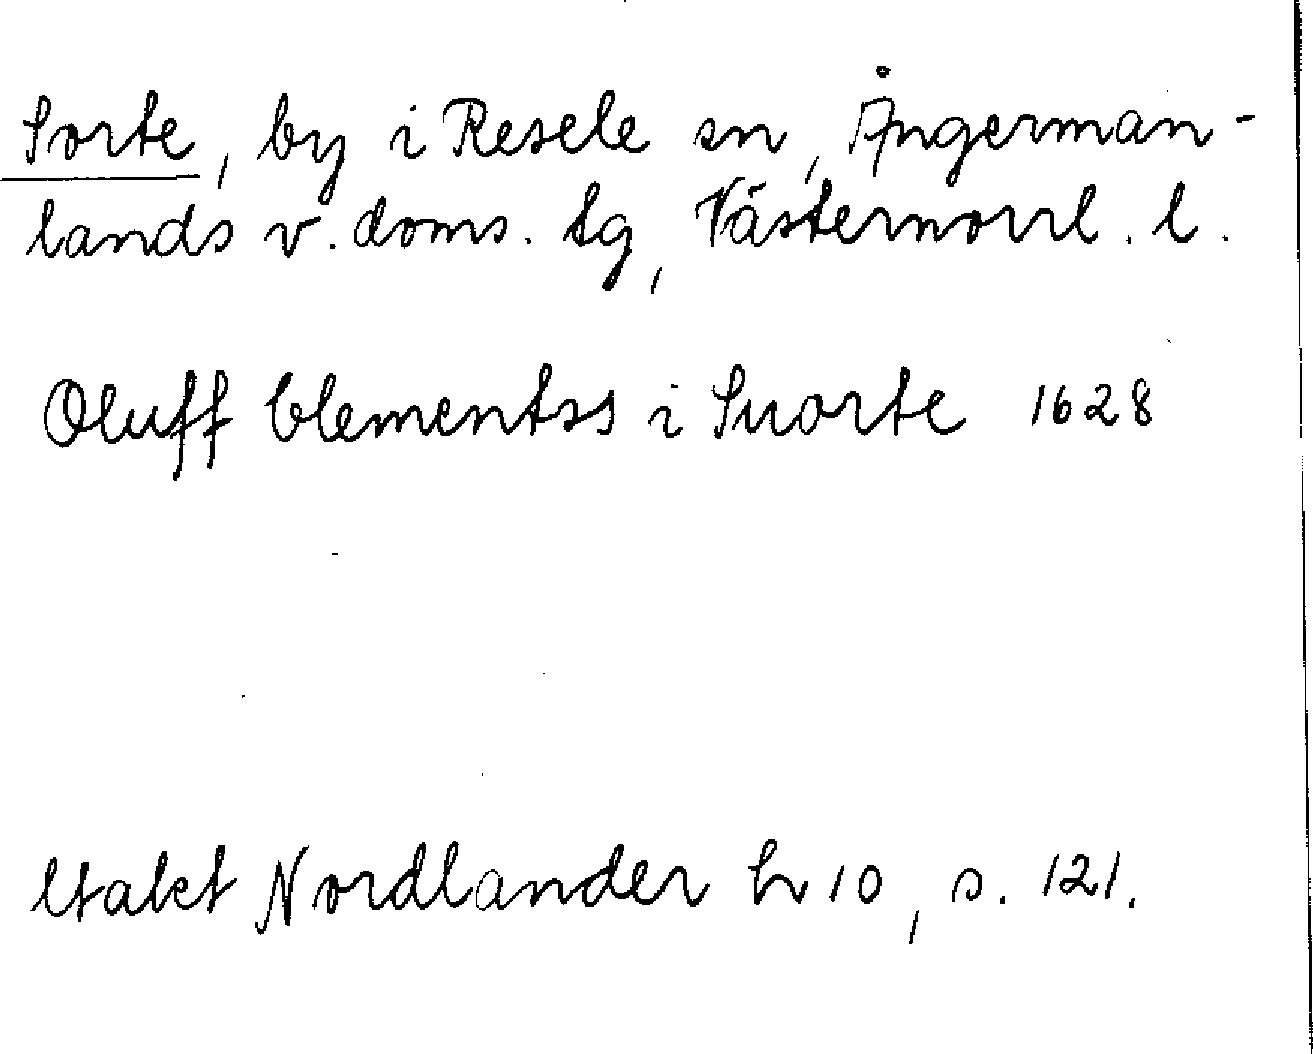 Sorte, by i Resele sn, Ångerman-
lands v. doms. tg, Västernorrl. l.
Oluff Clementss i Suorte 1628
Nordlander h 10, s. 121.